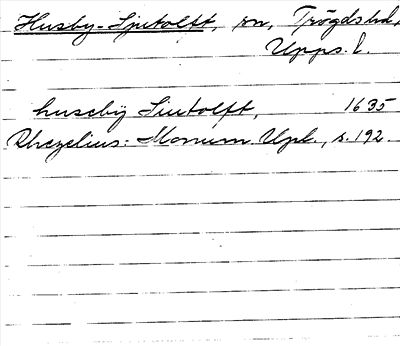 Husby-Sjutolft, sn, Trögds hd,
Upps. l.
huseby Siutolfft, 1635
Rhezelius: Monum Upl., s. 192.